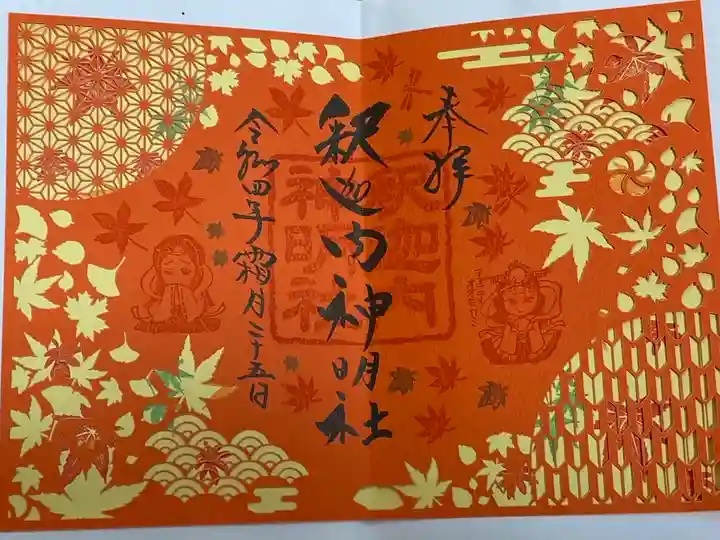 奉拝
釈迦内神明社
令和四年霜月二十五日
釈迦内
神明社